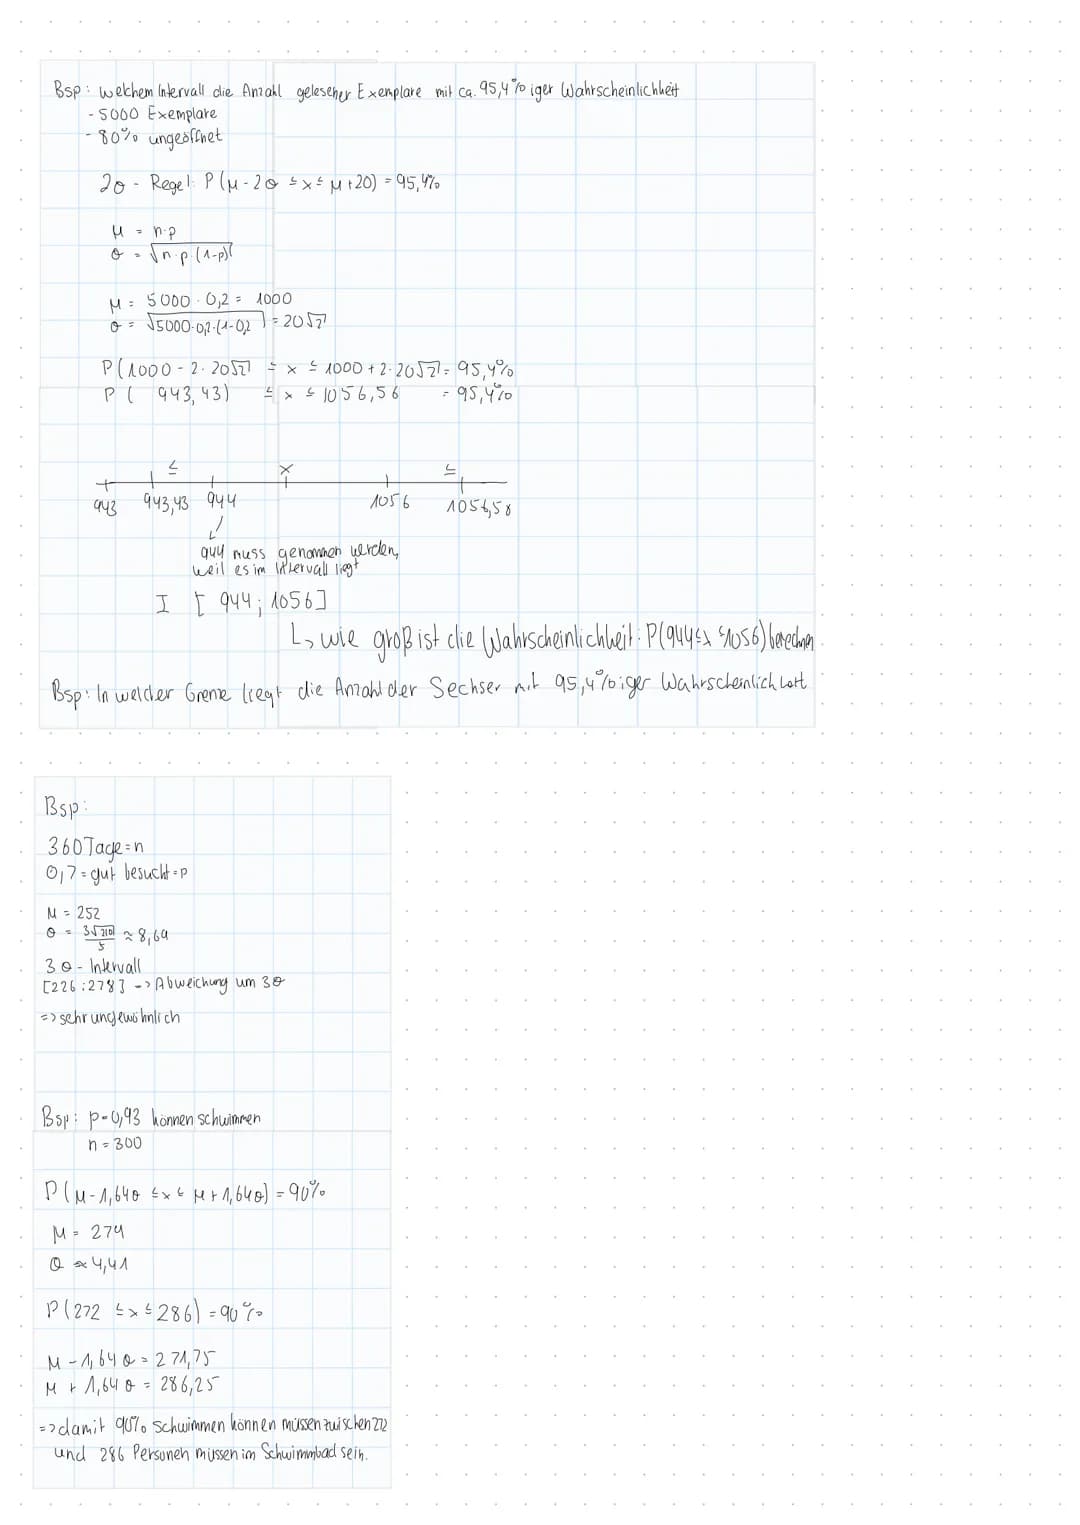 Bsp: welchem Intervall die Anzahl gelesener Exemplare mit ca. 95,4%iger Wahrscheinlichkeit
- 5000 Exemplare
- 80% ungeöffnet
2σ - Regel: P(μ-2σ ≤ x ≤ μ+2σ) = 95,4%
μ = n·p
σ = √n·p·(1-p)
μ = 5000 · 0,2 = 1000
σ = √5000·0,2·(1-0,2) = 20√2
P(1000 - 2·20√2 ≤ x ≤ 1000 + 2·20√2) = 95,4%
P( 943,43) ≤ x ≤ 1056,56 = 95,4%
≤ x ≤
943 943,43 944 1056 1056,58
944 muss genommen werden,
weil es im Intervall liegt
I [944; 1056]
↳ wie groß ist die Wahrscheinlichkeit: P(944≤x≤1056) berechnen
Bsp: In welcher Grenze liegt die Anzahl der Sechser mit 95,4%iger Wahrscheinlichkeit
Bsp:
360 Tage = n
0,7 = gut besucht = p
μ = 252
σ = 3√210/5 ≈ 8,69
3σ - Intervall
[226;278] -> Abweichung um 3σ
=> sehr ungewöhnlich
Bsp: p=0,93 können schwimmen
n = 300
P(μ-1,64σ ≤ x ≤ μ+1,64σ) = 90%
μ = 279
σ ≈ 4,41
P(272 ≤ x ≤ 286) = 90%
μ - 1,64σ = 271,75
μ + 1,64σ = 286,25
=> damit 90% schwimmen können müssen zwischen 272
und 286 Personen müssen im Schwimmbad sein.